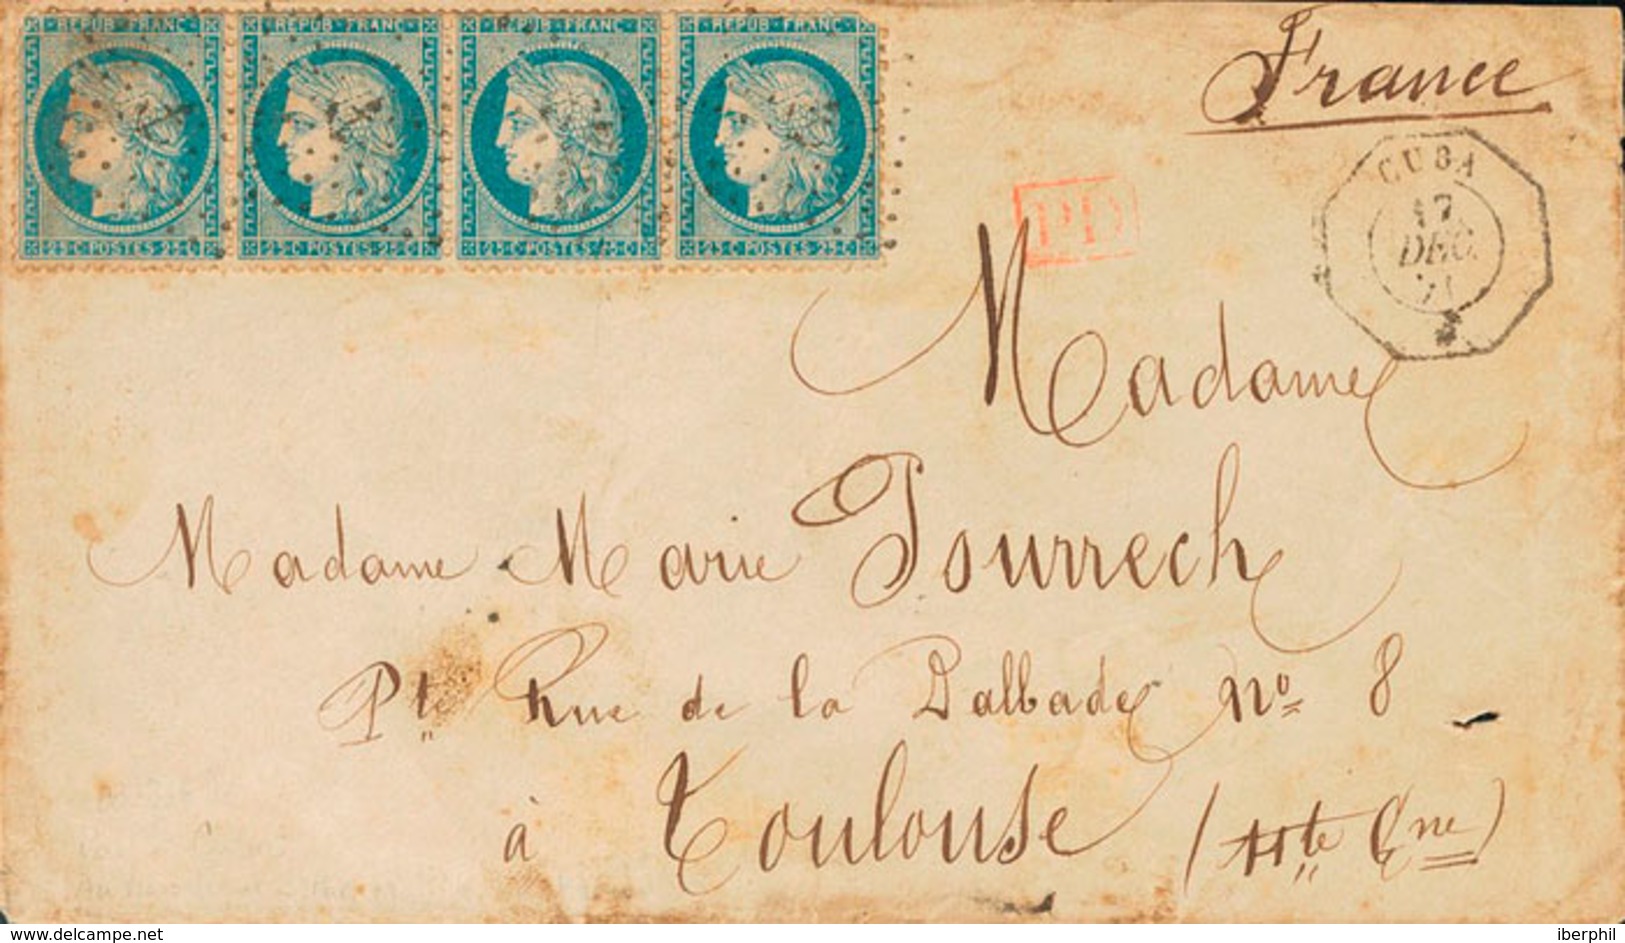 REPUB·FRANC REPUB·FRANC REPUB·FRANC REPUB·FRANC
25·C·POSTES·25·C 25·C·POSTES·25·C 25·C·POSTES·25·C 25·C·POSTES·25·C
France
PD
CUBA
17
DEC.
71
Madame
Madame Marie Pourrech
Pte Rue de la Dalbade No 8
à Toulouse (Hte Gne)
www.delcampe.net
iberphil